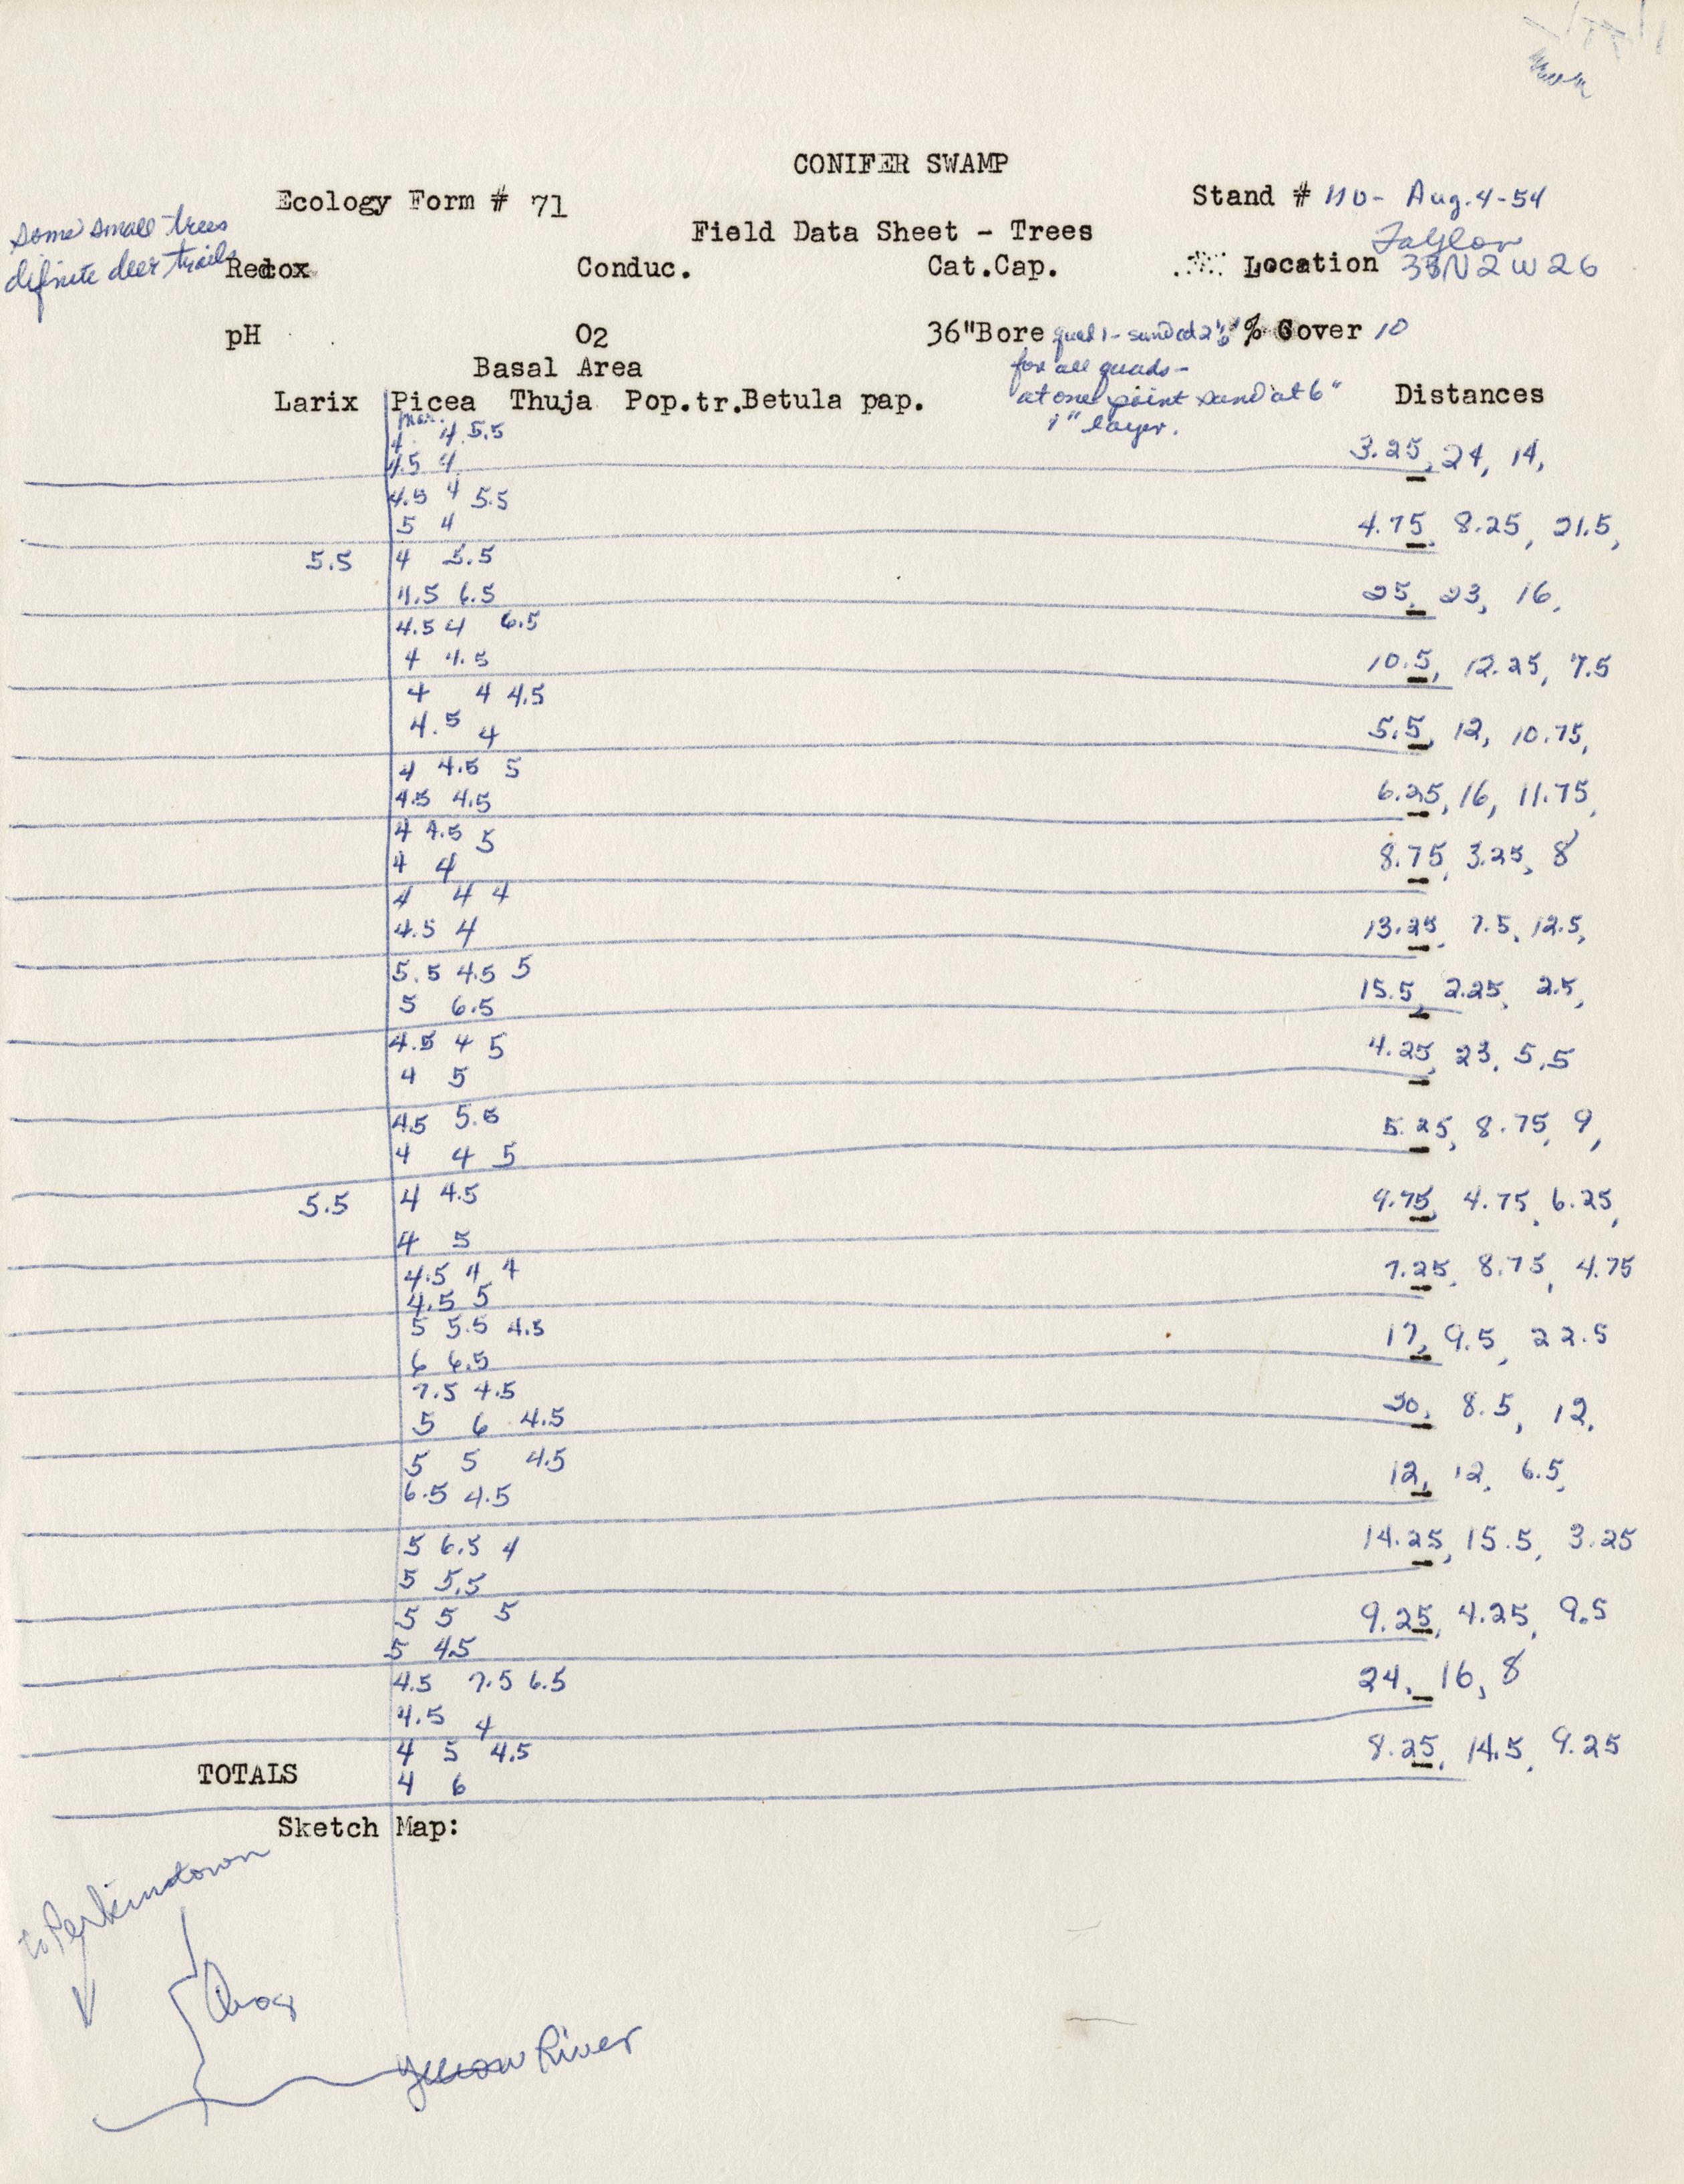 CONIFER SWAMP
Ecology Form # 71
Stand # 110- Aug. 4-54
some small trees
Field Data Sheet - Trees
Taylor
difinite deer trails
Redox Conduc. Cat.Cap. Location 33N2W26
pH O2 36"Bore quad 1- sand at 2½' % Cover 10
Basal Area
for all quads-
Larix Picea Thuja Pop.tr. Betula pap. at one point sand at 6" Distances
mar. 1" layer.
4 4 5.5
4.5 4 3.25, 24, 14,
4.5 4 5.5
5 4 4.75, 8.25, 21.5,
5.5 4 5.5
4.5 6.5 25, 23, 16,
4.5 4 6.5
4 4.5 10.5, 12.25, 7.5
4 4 4.5
4.5 4 5.5, 12, 10.75,
4 4.5 5
4.5 4.5 6.25, 16, 11.75,
4 4.5 5
4 4 8.75, 3.25, 8
4 4 4
4.5 4 13.25, 7.5, 12.5,
5.5 4.5 5
5 6.5 15.5, 2.25, 2.5,
4.5 4 5
4 5 4.25, 23, 5.5
4.5 5.5
4 4 5 5.25, 8.75, 9,
5.5 4 4.5 9.75, 4.75, 6.25,
4 5
4.5 4 4 7.25, 8.75, 4.75
4.5 5
5 5.5 4.5 17, 9.5, 22.5
6 6.5
7.5 4.5
5 6 4.5 8.5, 12,
5 5 4.5
6.5 4.5 12, 12, 6.5,
5 6.5 4 14.25, 15.5, 3.25
5 5.5
5 5 5 9.25, 4.25, 9.5
5 4.5
4.5 7.5 6.5 24, 16, 8
4.5 4
4 5 4.5 8.25, 14.5, 9.25
TOTALS 4 6
Sketch Map:
to Perkinstown
Yellow River